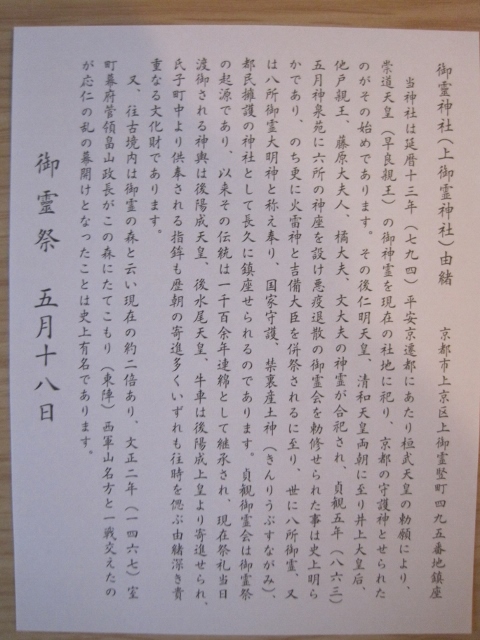 御霊神社(上御霊神社)由緒　京都市上京区上御霊竪町四九五番地鎮座
当神社は延暦十三年(七九四)平安京遷都にあたり桓武天皇の勅願により、
崇道天皇(早良親王)の御神霊を現在の社地に祀り、京都の守護神とせられた
のがその始めであります。その後仁明天皇、清和天皇両朝に至り井上大皇后、
他戸親王、藤原大夫人、橘大夫、文大夫の神霊が合祀され、貞観五年(八六三)
五月神泉苑に六所の神座を設け悪疫退散の御霊会を勅修せられた事は史上明ら
かであり、のち更に火雷神と吉備大臣を併祭されるに至り、世に八所御霊、又
は八所御霊大明神と称え奉り、国家守護、禁裏産土神(きんりうぶすながみ)、
都民擁護の神社として長久に鎮座せられるのであります。貞観御霊会は御霊祭
の起源であり、以来その伝統は一千百余年連綿として継承され、現在祭礼当日
渡御される神輿は後陽成天皇、後水尾天皇、牛車は後陽成上皇より寄進せられ、
氏子町中より供奉される指鉾も歴朝の寄進多くいずれも往時を偲ぶ由緒深き貴
重なる文化財であります。
又、往古境内は御霊の森と云い現在の約二倍あり、文正二年(一四六七)室
町幕府管領畠山政長がこの森にたてこもり(東陣)西軍山名方と一戦交えたの
が応仁の乱の幕開けとなったことは史上有名であります。
御霊祭　五月十八日